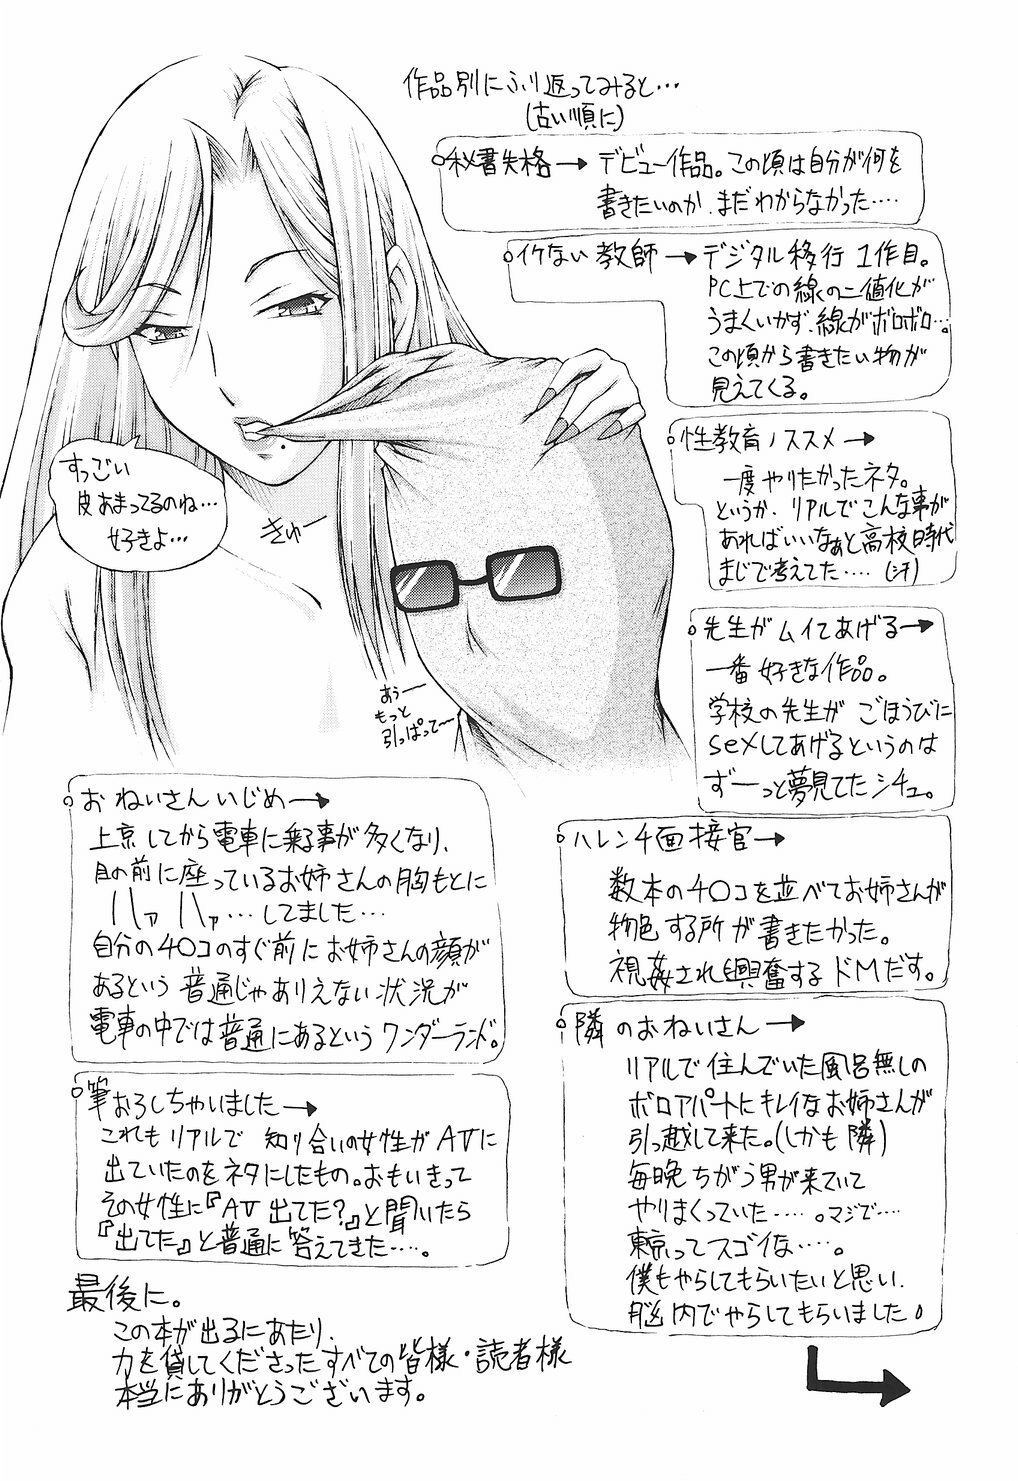 作品別にふり返ってみると…
(古い順に)
秘書失格→デビュー作品。この頃は自分が何を
書きたいのか、まだわからなかった‥‥
イケない教師→デジタル移行1作目。
PC上での線の二値化が
うまくいかず、線がボロボロ…。
この頃から書きたい物が
見えてくる。
性教育ノススメ→
一度やりたかったネタ。
というか、リアルでこんな事が
あればいいなぁと高校時代
まじで考えてた‥‥(汗)
先生がムイてあげる→
一番好きな作品。
学校の先生がごほうびに
sexしてあげるというのは
ずーっと夢見てたシチュ。
すっごい
皮あまってるのね…
好きよ…
きゅー
あぅー
もっと
引っぱって〜
おねいさんいじめ→
上京してから電車に乗る事が多くなり、
目の前に座っているお姉さんの胸もとに
ハァハァ…してました…
自分のチ○コのすぐ前にお姉さんの顔が
あるという普通じゃありえない状況が
電車の中では普通にあるというワンダーランド。
筆おろしちゃいました→
これもリアルで知り合いの女性がAVに
出ていたのをネタにしたもの。おもいきって
その女性に『AV出てた?』と聞いたら
『出てた』と普通に答えてきた‥‥。
ハレンチ面接官→
数本のチ○コを並べてお姉さんが
物色する所が書きたかった。
視姦され興奮するドMだす。
隣のおねいさん→
リアルで住んでいた風呂無しの
ボロアパートにキレイなお姉さんが
引っ越して来た。(しかも隣)
毎晩ちがう男が来ていて
やりまくっていた‥‥。マジで‥‥
東京ってスゴイな‥‥。
僕もやらしてもらいたいと思い、
脳内でやらしてもらいました。
最後に。
この本が出るにあたり、
力を貸してくださったすべての皆様・読者様
本当にありがとうございます。